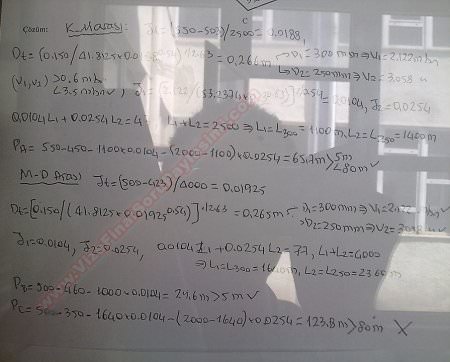 Çözüm: K Masası: Jt=(550-503)/2500=0.0188,
Dt=(0.150/41.8125*0.0188^0.54)^1.263=0.266m D1=300mm⇒V1=2.122m/sn
D2=250mm⇒V2=3.058 "
(V1,V2) >0.6m/sn <3.5m/sn ✓, J1=0.0104, J2=0.0254
0.0104L1+0.0254L2=47 L1+L2=2500⇒L1=L300=1100m, L2=L250=1400m
PA=550-450-1100*0.0104-(2000-1100)*0.0254=65.7m>5m <80m ✓
M-D Arası Jt=(500-423)/4000=0.01925
Dt=[0.150/(41.8125*0.01925^0.54)]^1.263=0.265m D1=300mm⇒V1=2.122 m/sn ✓
D2=250mm⇒V2=3.058 " ✓
J1=0.0104, J2=0.0254, 0.0104L1+0.0254L2=77, L1+L2=4000
⇒L1=L300=1640m, L2=L250=2360m
PB=500-460-1000*0.0104=29.6m>5m ✓
PC=500-350-1640*0.0104-(2000-1640)*0.0254=123.8m>80m X